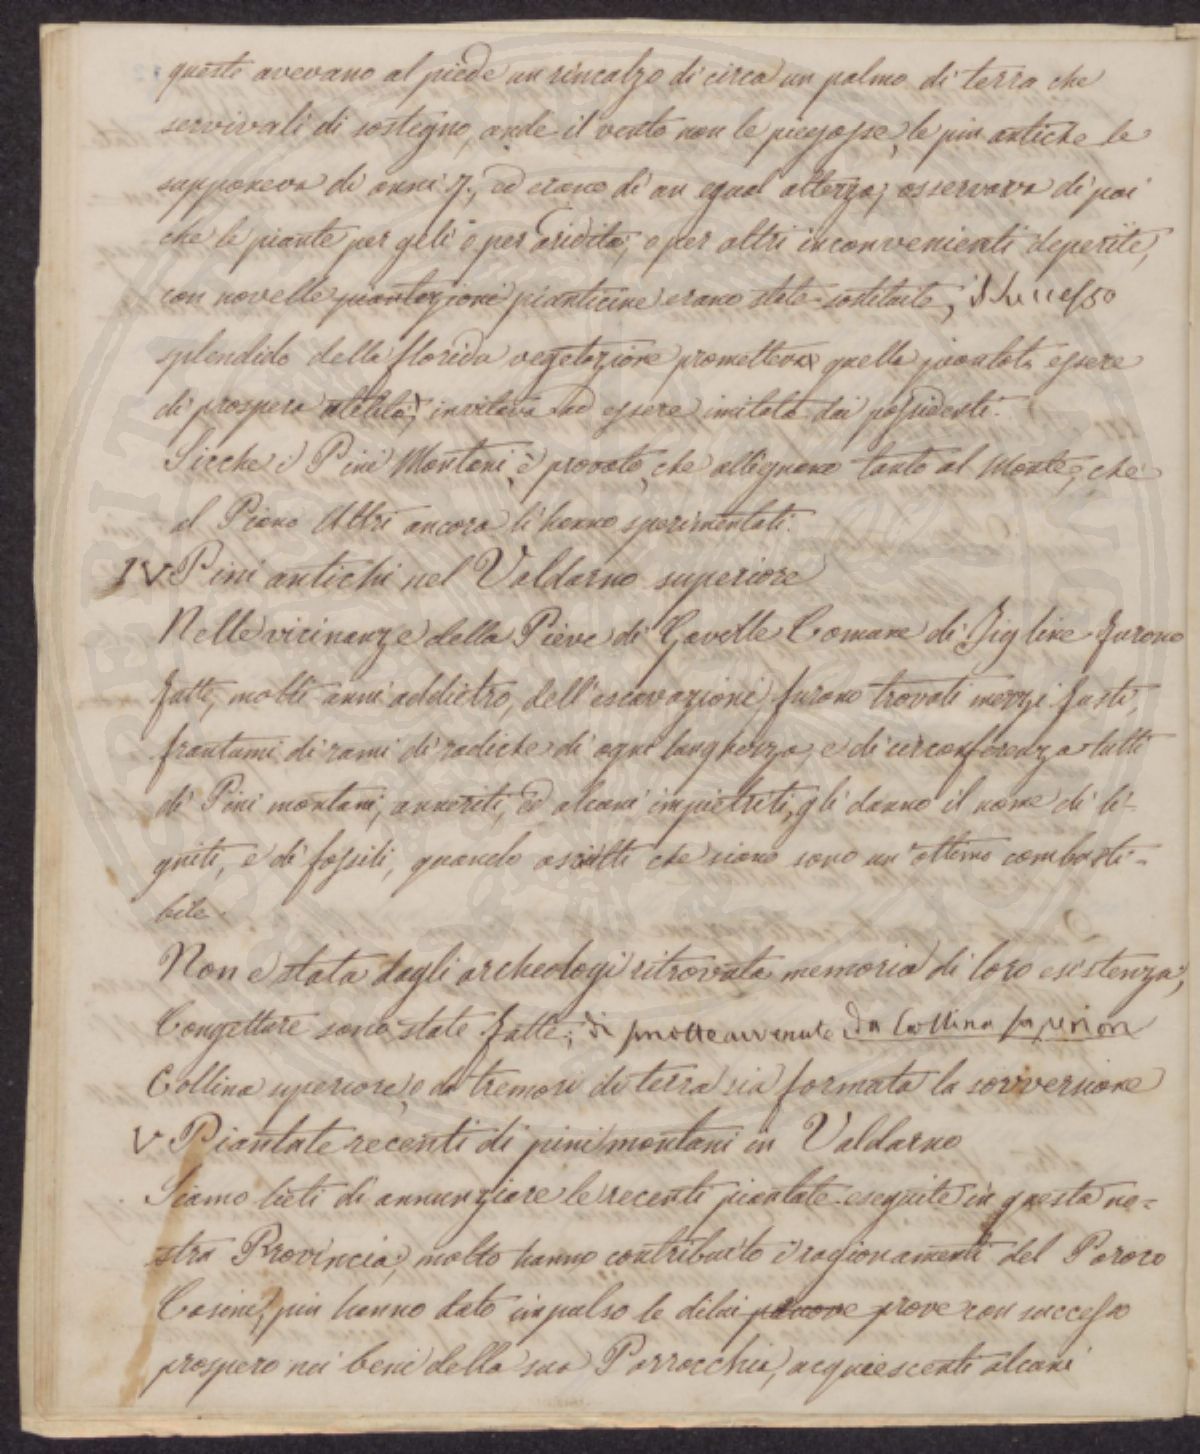 queste avevano al piede un rincalzo di circa un palmo di terra che
servivali di sostegno, onde il vento non le piegasse, le piu antiche le
supponeva di anni 7., ed erano di un egual altezza; osservava di poi
che le piante per geli o per aridità, o per altri inconvenienti deperite,
con novelle piantagioni pianticine erano state sostituite; il successo
splendido della florida vegetazione prometteva quella piantata essere
di prospera utilità, invitava ad essere imitata dai possidenti.
Sicche i Pini Montani, è provato, che allignano tanto al Monte, che
al Piano Altri ancora li hanno sperimentati.
IV Pini antichi nel Valdarno superiore
Nelle vicinanze della Pieve di Gavelle Comune di Figline furono
fatte, molti anni addietro, dell'escavazioni, furono trovati mezzi fusti,
frantumi di rami di radiche di ogni lunghezza, e di circonferenza tutti
di Pini montani, anneriti, ed alcuni impietriti, gli danno il nome di li-
gniti, e di fossili, quando asciutti che siano sono un'ottimo combusti-
bile.
Non è stata dagli archeologi ritrovata memoria di loro esistenza,
Congetture sono state fatte; di smotte avvenute da Collina superiore
Collina superiore, o da tremori di terra sia formata la sovversione
V Piantate recenti di pini montani in Valdarno
Siamo lieti di annunziare le recenti piantate eseguite in questa no-
stra Provincia, molto hanno contribuito i ragionamenti del Paroco
Casini, piu hanno dato impulso le dilui prove con successo
prospero nei beni della sua Parrocchia, acquiescenti alcuni